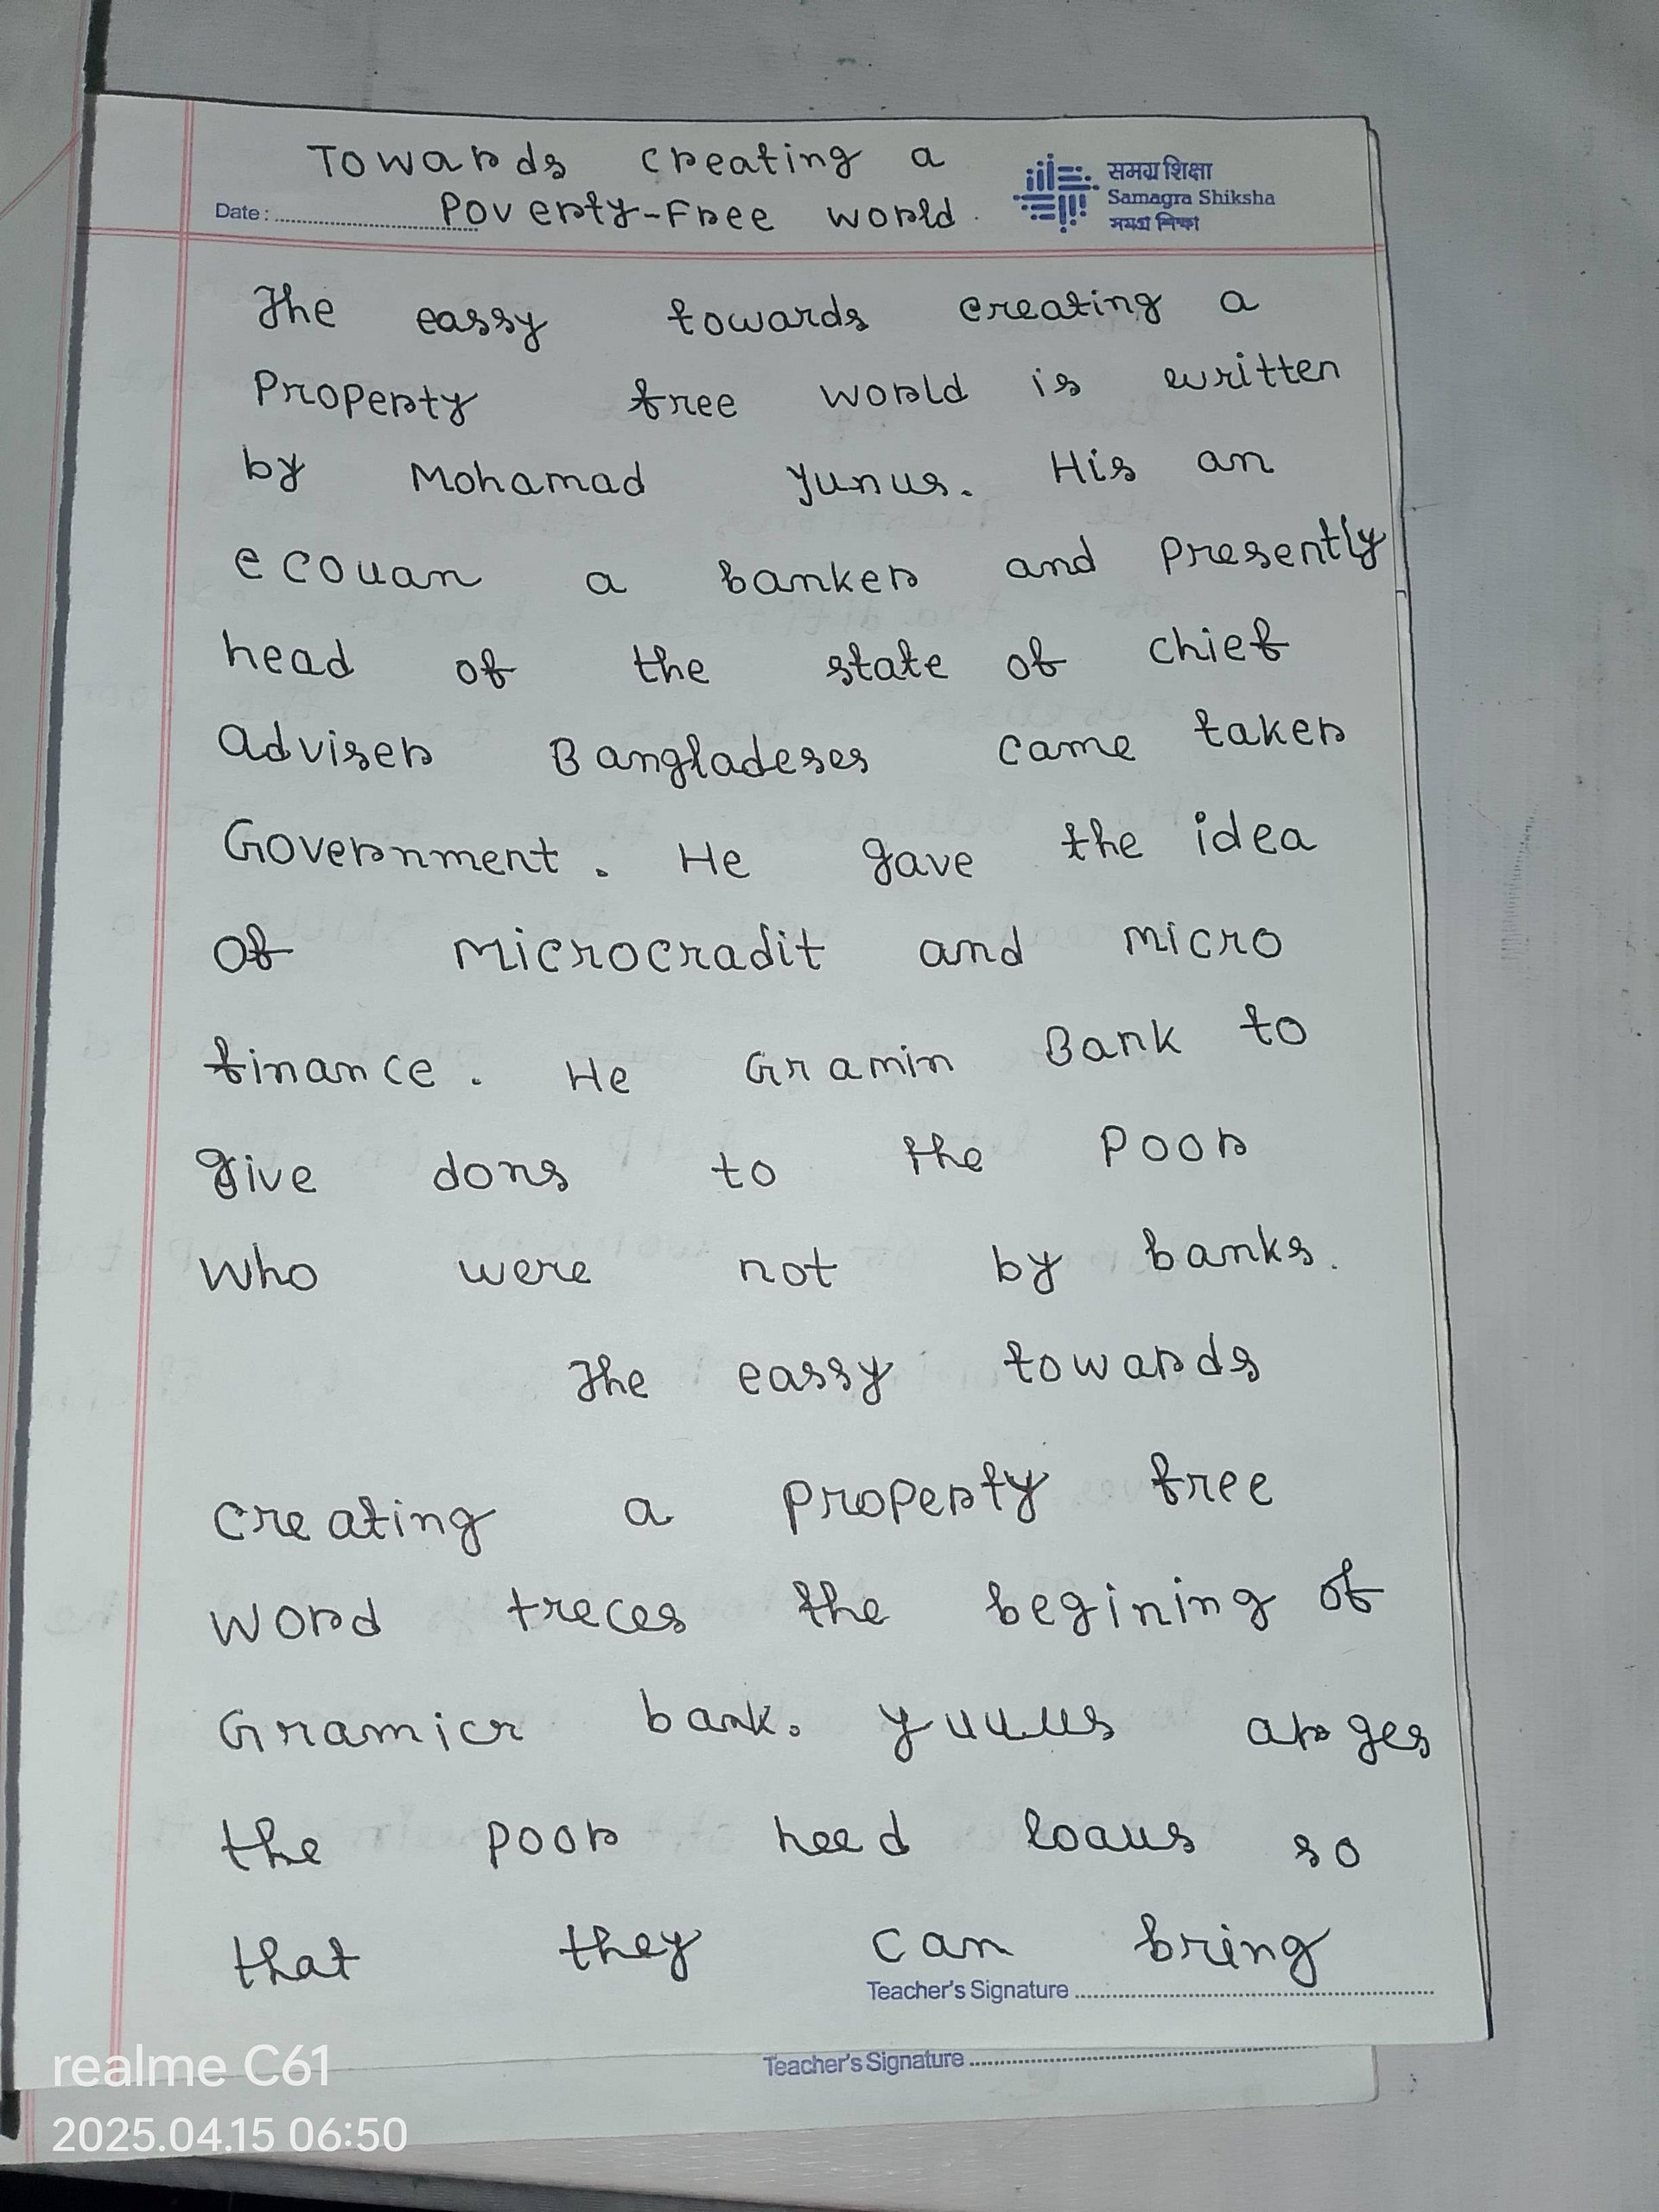 Towards creating a
Date: Poverty-Free world.
समग्र शिक्षा
Samagra Shiksha
The eassy towards creating a
Property free world is written
by Mohamad yunus. His an
ecouan a banker and presently
head of the state of chief
adviser Bangladeses came taker
Government. He gave the idea
of microcradit and micro
finance. He Gramin Bank to
give dons to the poor
who were not by banks.
The eassy towards
creating a property free
word treces the begining of
Gramicr bank. yuuus arges
the poor need loaus so
that they can bring
Teacher's Signature
Teacher's Signature
realme C61
2025.04.15 06:50